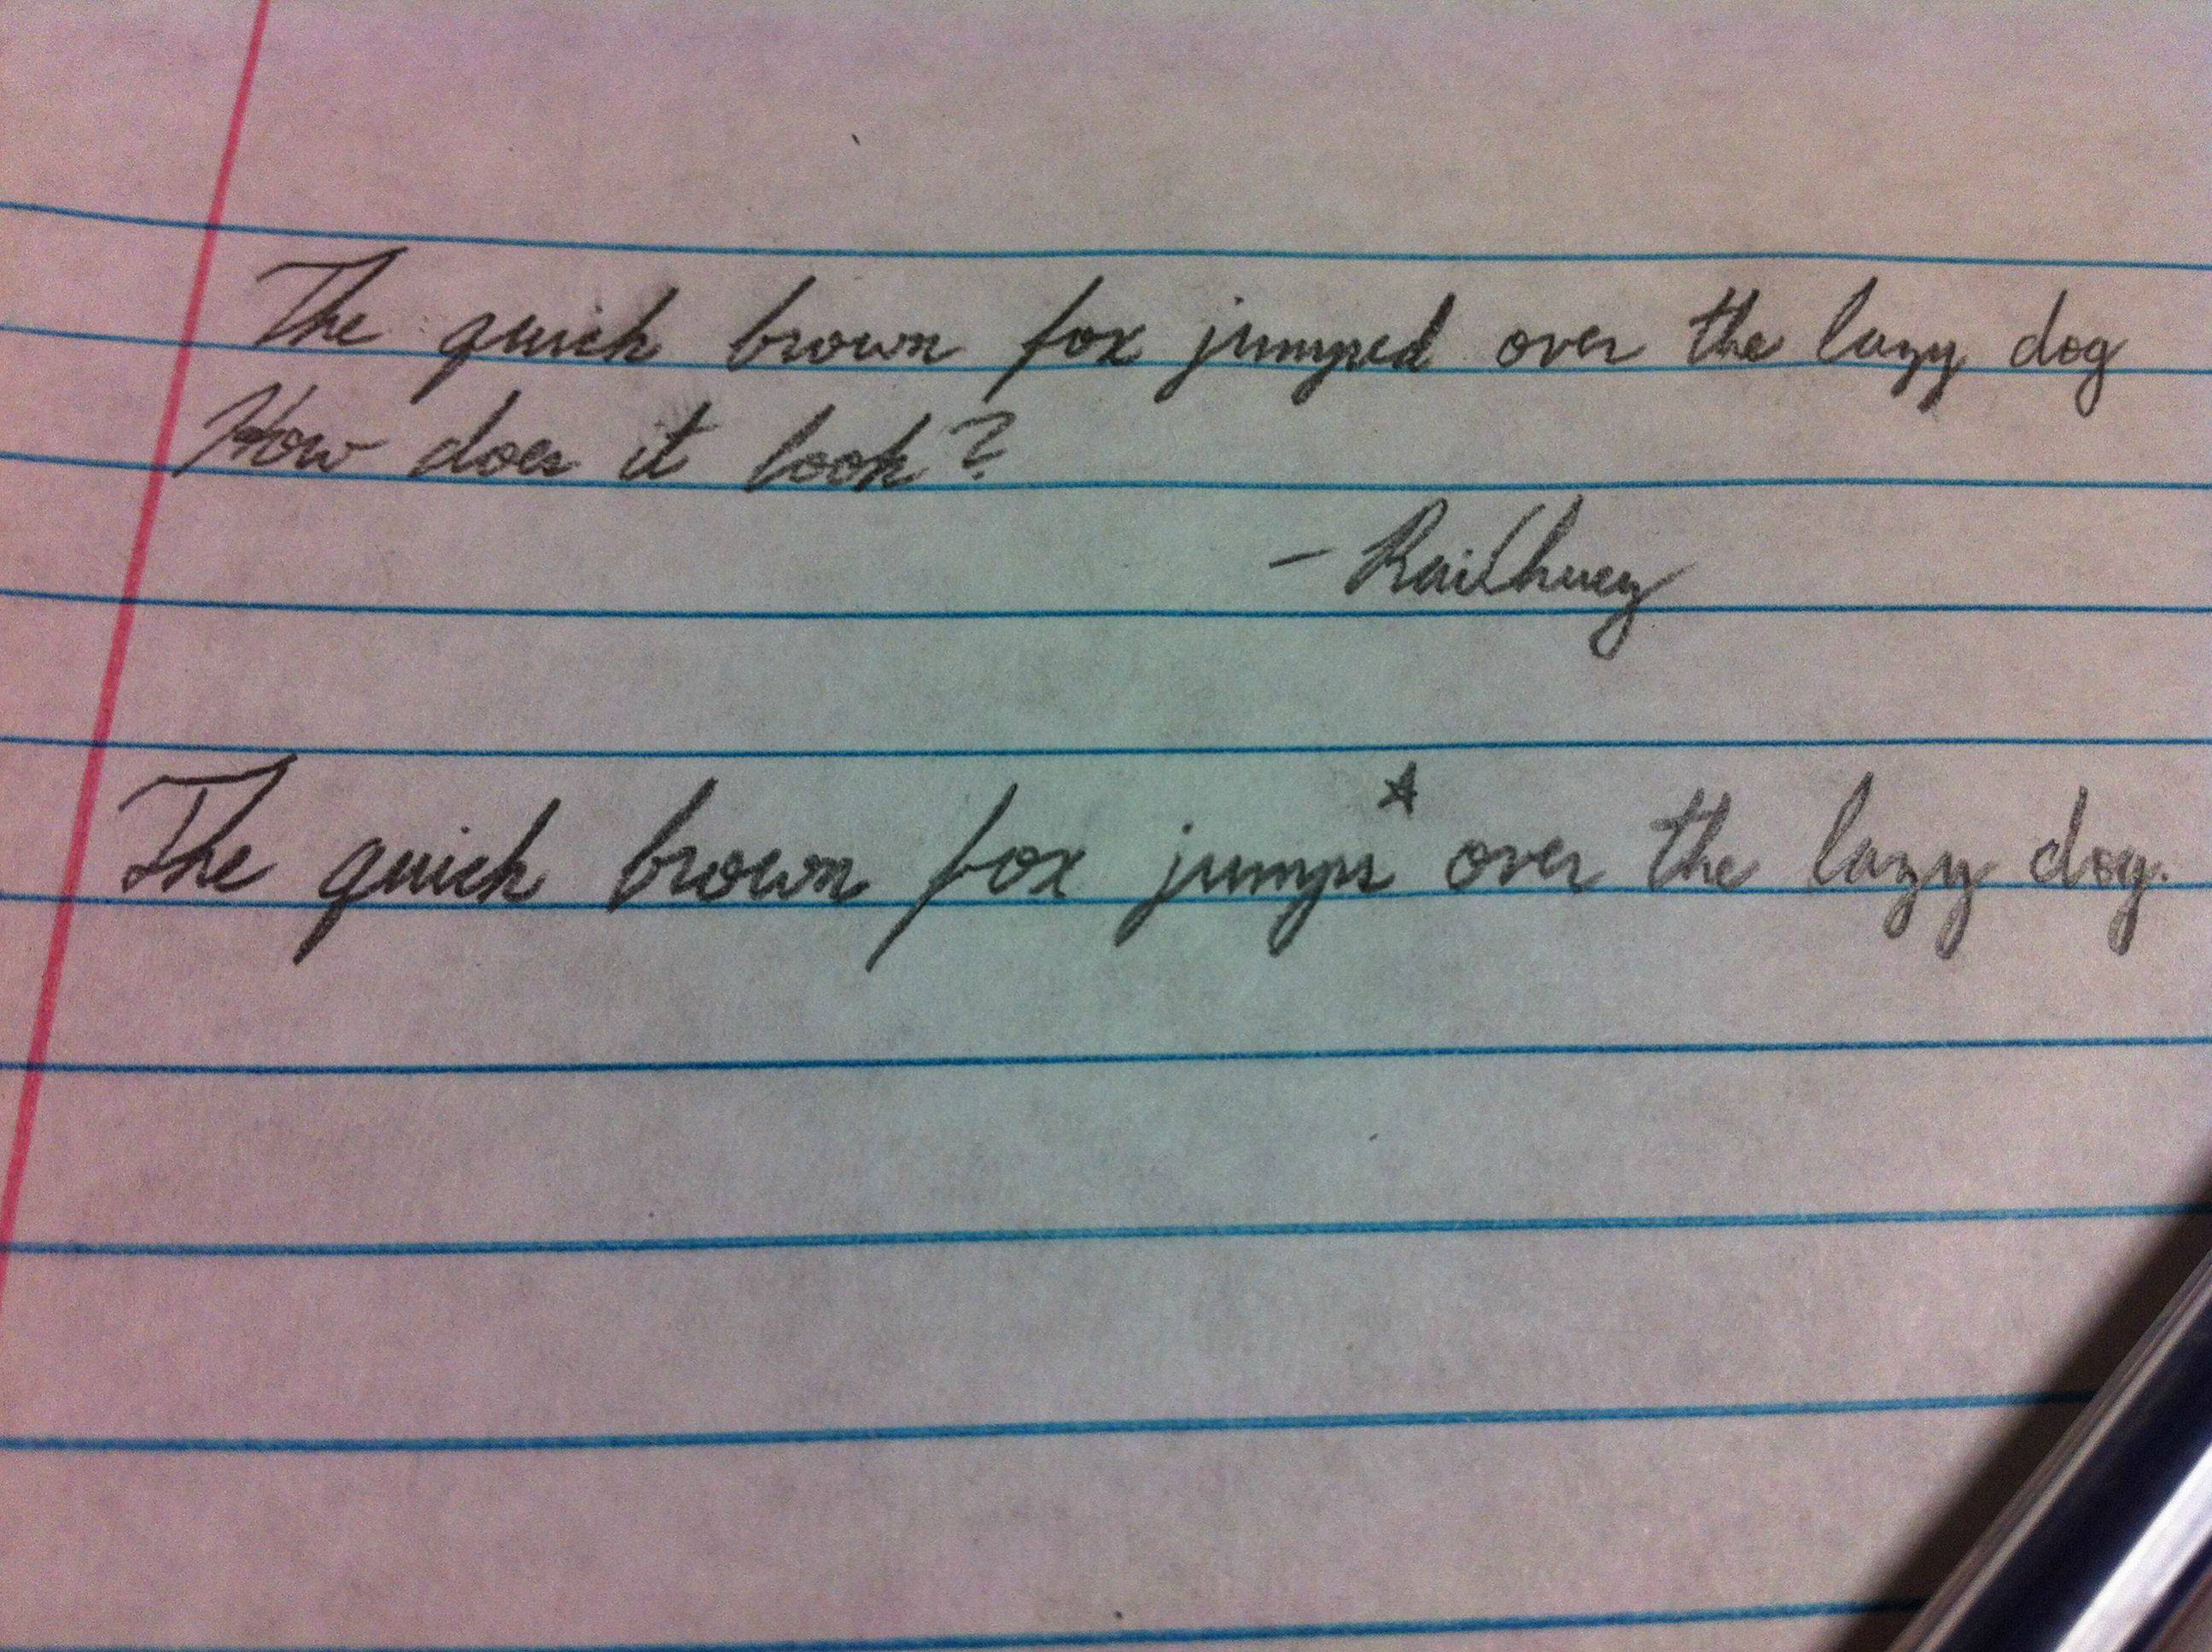 The quick brown fox jumped over the lazy dog
How does it look?
- RaiChuey
The quick brown fox jumps* over the lazy dog.